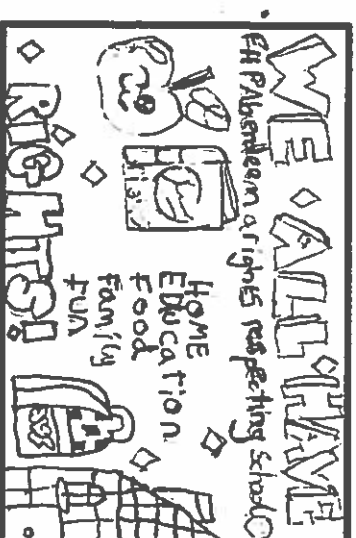 WE ALL HAVE
EHPAberdeem a rights respecting School
HOME
EDUcation
Food
Family
fun
RIGHTS!